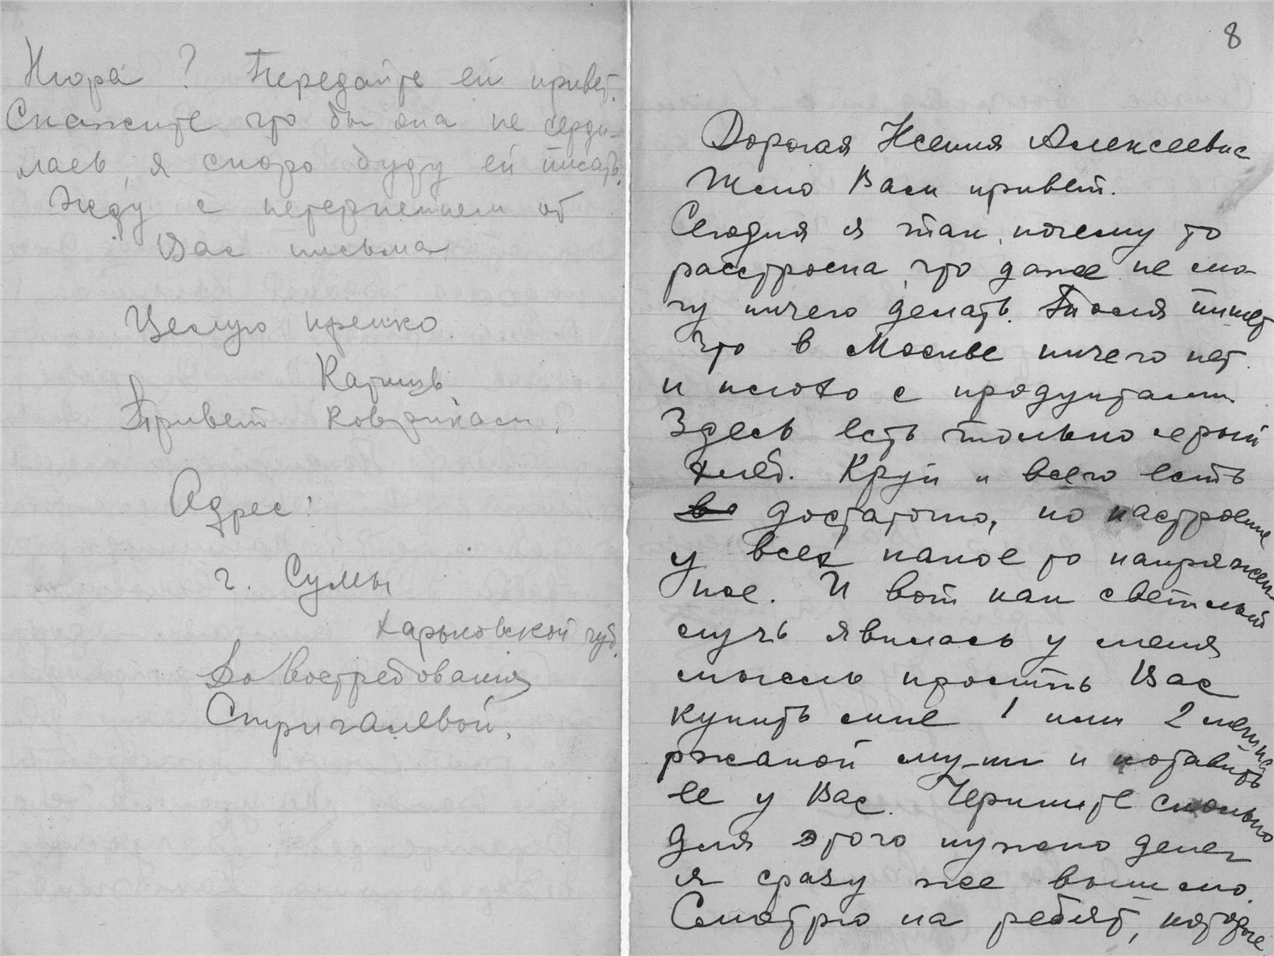 Нюра? Передайте ей привет.
Скажите что бы она не серди-
лась, я скоро буду ей писать.
Жду с нетерпением от
Вас письма
Целую крепко
Катищь
Привет Ковтикам.
Адрес:
г. Сумы
Харьковской губ.
До Востребования
Стригалевой.
8
Дорогая Ксения Алексеевна
Шлю Вам привет.
Сегодня я так почему то
расстроена, что даже не мо-
гу ничего делать. пишет
что в Москве ничего нет
и плохо с продуктами
Здесь есть только серый
хлеб. Круп и всего есть
достаточно, но настроение
у всех какое то напряжен-
ное. И вот как светлый
луч явилась у меня
мысль просить Вас
купить мне 1 или 2 мешка
ржаной му-ки и оставить
ее у Вас. Черкните сколько
для этого нужно денег
я сразу же вышлю.
Смотрю на ребят, которые